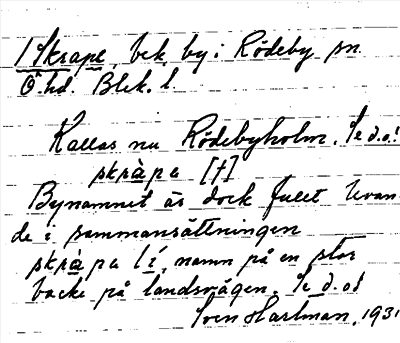 1 Skrape, bek. by i Rödeby sn
Ö. hd. Blek. l.
Kallas nu Rödebyholm. Se d.o!
skràpa [†]
Bynamnet är dock fullt levan
de i sammansättningen
skràpa lí, namn på en stor
backe på landsvägen. Se d.o!
Sven Hartman, 1931